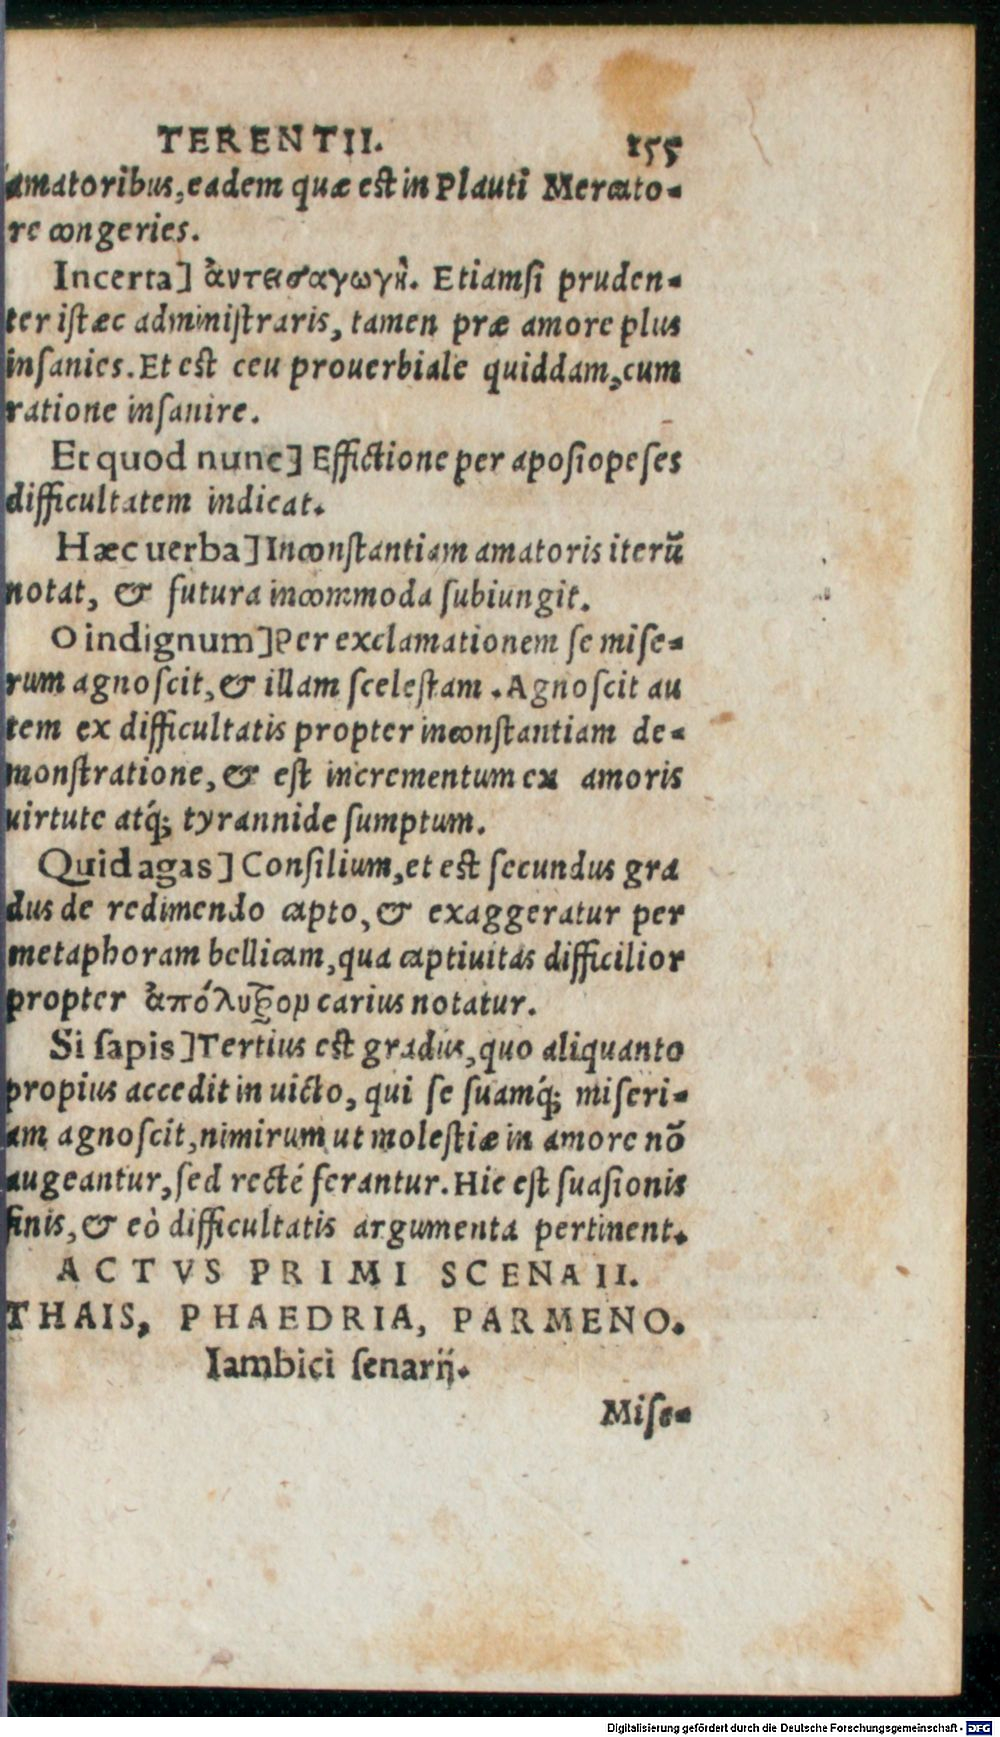 TERENTII. 155
amatoribus, eadem quæ est in Plauti Mercato-
re congeries.
Incerta] ἀντεισαγωγὴ. Etiamsi pruden-
ter istæc administraris, tamen præ amore plus
insanies. Et est ceu prouerbiale quiddam, cum
ratione insanire.
Et quod nunc] Effictione per aposiopeses
difficultatem indicat.
Hæc uerba] Inconstantiam amatoris iterũ
notat, & futura incommoda subiungit.
O indignum] Per exclamationem se mise-
rum agnoscit, & illam scelestam. Agnoscit au
tem ex difficultatis propter inconstantiam de-
monstratione, & est incrementum ex amoris
uirtute atq́; tyrannide sumptum.
Quid agas] Consilium, et est secundus gra
dus de redimendo capto, & exaggeratur per
metaphoram bellicam, qua captiuitas difficilior
propter ἀπόλυτρον carius notatur.
Si sapis] Tertius est gradus, quo aliquanto
propius accedit inuicto, qui se suamq́; miseri-
am agnoscit, nimirum ut molestiæ in amore nõ
augeantur, sed recté ferantur. Hic est suasionis
finis, & eò difficultatis argumenta pertinent.
ACTVS PRIMI SCENA II.
THAIS, PHAEDRIA, PARMENO.
Iambici senarij.
Mise-
Digitalisierung gefördert durch die Deutsche Forschungsgemeinschaft - DFG